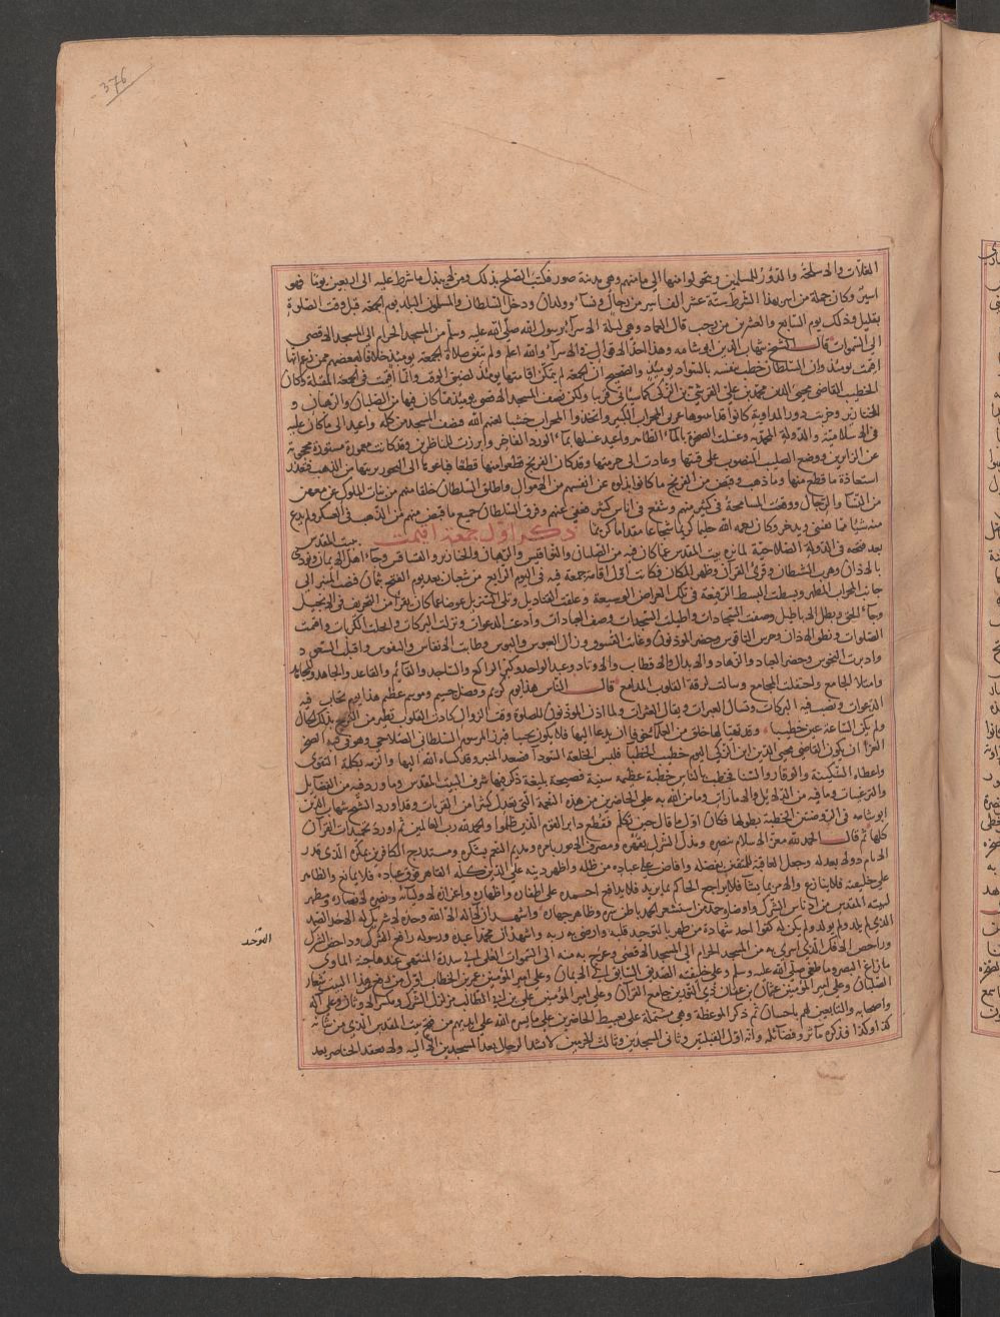 376
الغلات والاسلحة والدور للمسلمين ويتحولوا منها الى مامنهم وهي مدينة صور فكتب الصلح بذلك ومن لم يبذل ما شرط عليه الى اربعين يوما فهو
اسير وكان جملة من اسر بهذا الشرط ستة عشر الف اسير من رجال ونساء وولدان ودخل السلطان والمسلمون البلد يوم الجمعة قبل وقت الصلوة
بقليل وذلك يوم السابع والعشرين من رجب قال العماد وهي ليلة الاسراء برسول الله صلى الله عليه وسلم من المسجد الحرام الى المسجد الاقصى
الى السموات قال الشيخ شهاب الدين ابو شامه وهذا احد الاقوال في الاسراء والله اعلم ولم يتفق صلاة الجمعة يومئذ خلافا لبعضهم ممن زعم انها
اقيمت يومئذ وان السلطان خطب بنفسه بالسواد يومئذ والصحيح ان الجمعة لم يتمكن اقامتها يومئذ لضيق الوقت وانما اقيمت في الجمعة المقبلة وكان
الخطيب القاضي محيي الدين محمد بن علي القرشي بن الزكي كما سياتي قريبا ولكن نصف المسجد الاقصى يومئذ مما كان فيها من الصلبان والرهبان و
الخنازير وخربت دور للداوية كانوا قد بنوها غربي المحراب الكبير واتخذوا المحراب حشا لعنهم الله ونصف المسجد من كله واعيد الى ما كان عليه
في الاسلامية والدولة المحمدية وغسلت الصخرة بالماء الطاهر واعيد غسلها بماء الورد الفاخر وابرزت للناظرين وقد كانت معمورة مستورة محجوبة
عن الزايرين ووضع الصليب المنصوب على قبتها وعادت الى حرمتها وقد كان الفرنج قطعوا منها قطعا فباعوها الى البحور بزنتها من الذهب فتعذر
استعاذة ما قطع منها وما ذهب وقبض من الفرنج ما كانوا بذلوه عن انفسهم من الاموال واطلق السلطان خلقا منهم من بنات الملوك عن معهن
من النساء والرجال ووقعت المسامحة في كثير منهم وشفع في اناس كثير فعفى عنهم وفرق السلطان جميع ما قبض منهم من الذهب في العسكر ولم يدع
منه شيئا مما يقتنى ويدخر وكان رحمه الله حليما كريما شجاعا مقداما كريما ذكر اول جمعة اقيمت ببيت المقدس
بعد فتحه في الدولة الصلاحية لما نزه بيت المقدس عما كان فيه من الصلبان والنواقيس والرهبان والخنازير والقساقس وجاء اهل الايمان ونودي
بالاذان وهرب الشيطان وقرئ القرآن وطهر المكان فكانت اول اقامة جمعة فيه في اليوم الرابع من شعبان بعد يوم الفتح بثمان فنصب المنبر الى
جانب المحراب المطهر وبسطت البسط الرفيعة في تلك العراص الوسيعة وعلقت القناديل وتلى التنزيل عوضا عما كان يقرأ من التحريف في الانجيل
وجاء الحق وبطل الاباطيل وصفت السجادات واطيلت السجدات وصف العبادات وادعت الدعوات ونزلت البركات وانجلت الكربات واقيمت
الصلوات ونطق الاذان وخرس الناقوس وحضر المؤذنون وغاب القسوس وزال العبوس والبوس وطابت الانفاس والنفوس واقبلت السعود
وادبرت النحوس وحضر العباد والزهاد والابدال والاقطاب والاوتاد وعبد الواحد وكثر الراكع والساجد والقائم والقاعد والمجاهد
وامتلا الجامع واحتفلت المجامع وسالت لرقة القلوب المدامع قال الناس هذا يوم كريم وفضل جسيم وموسم عظيم هذا يوم تجاب فيه
الدعوات وتصب فيه البركات وتسال العبرات وتقال العثرات ولما اذن المؤذنون للصلوة وقت الزوال كادت القلوب تطير من الفرح بذلك الحال
ولم يكن الساعة عين خطيبا وقد تهيا لها خلق من العلماء فبرز المرسوم السلطاني الصلاحي وهو في قبة الصخرة
الغرا ان يكون القاضي محيي الدين ابن الزكي اليوم خطيبا فلبس الخلعة السودآ وصعد المنبر وقد كساه الله البها والزمه بكلمة التقوى
واعطاه السكينة والوقار والسنا فخطب بالناس خطبة عظيمة سنية فصيحة بليغة ذكر فيها شرف البيت المقدس وما ورد فيه من الفضايل
والترغيبات وما فيه من الدلايل والامارات وما من الله به على الحاضرين من هذه النعمة التي تعدل كثيرا من القربات وقد اورد الشيخ شهاب الدين
ابو شامه في الروضتين الخطبة بطولها فكان اول ما قال حين تكلم فقطع دابر القوم الذين ظلموا والحمد لله رب العالمين ثم اورد تحميدات القرآن
كلها ثم قال الحمد لله معز الاسلام بنصره ومذل الشرك بقهره ومصرف الامور بامره ومديم النعم بشكره ومستدرج الكافرين بمكره الذي قدر
الايام دولا بعدله وجعل العاقبة للمتقين بفضله وافاض على عباده من ظله واظهر دينه على الدين كله القاهر فوق عباده فلا يمانع والظاهر
على خليقته فلا ينازع والامر بما يشا فلا يراجع الحاكم بما يريد فلا يدافع احمده على اظفاره واظهاره واعزازه لاوليائه ونصره لانصاره ومطهر
لبيته المقدس من ادناس الشرك واوضاره حمد من استشعر الحمد باطن سره وظاهر جهاره واشهد ان لا اله الا الله وحده لا شريك له الاحد الصمد
الذي لم يلد ولم يولد ولم يكن له كفوا احد شهادة من طهر بالتوحيد قلبه وارضى به ربه واشهد ان محمدا عبده ورسوله رافع الشكوك وداحض الشرك
وراحض الافك الذي اسري به من المسجد الحرام الى المسجد الاقصى وعرج به منه الى السموات العلى الى سدرة المنتهى عندها جنة الماوى
ما زاغ البصر وما طغى صلى الله عليه وسلم وعلى خليفته الصديق السابق الى الايمان وعلى امير المؤمنين عمر بن الخطاب اول من رفع عن هذا البيت شعار
الصلبان وعلى امير المؤمنين عثمان بن عفان ذي النورين جامع القرآن وعلى امير المؤمنين علي بن ابي الطالب مزلزل الشرك ومكسر الاوثان وعلى آله
واصحابه والتابعين لهم باحسان ثم ذكر الموعظة وهي مشتملة على تغبيط الحاضرين على ما يسره الله على ايديهم من فتح بيت المقدس الذي من شانه
كذا وكذا فذكره مآثره وفضائله وانه اول القبلتين وثاني المسجدين وثالث الحرمين لا تشد الرحال بعد المسجدين الا اليه ولا تعقد الخناصر بعد